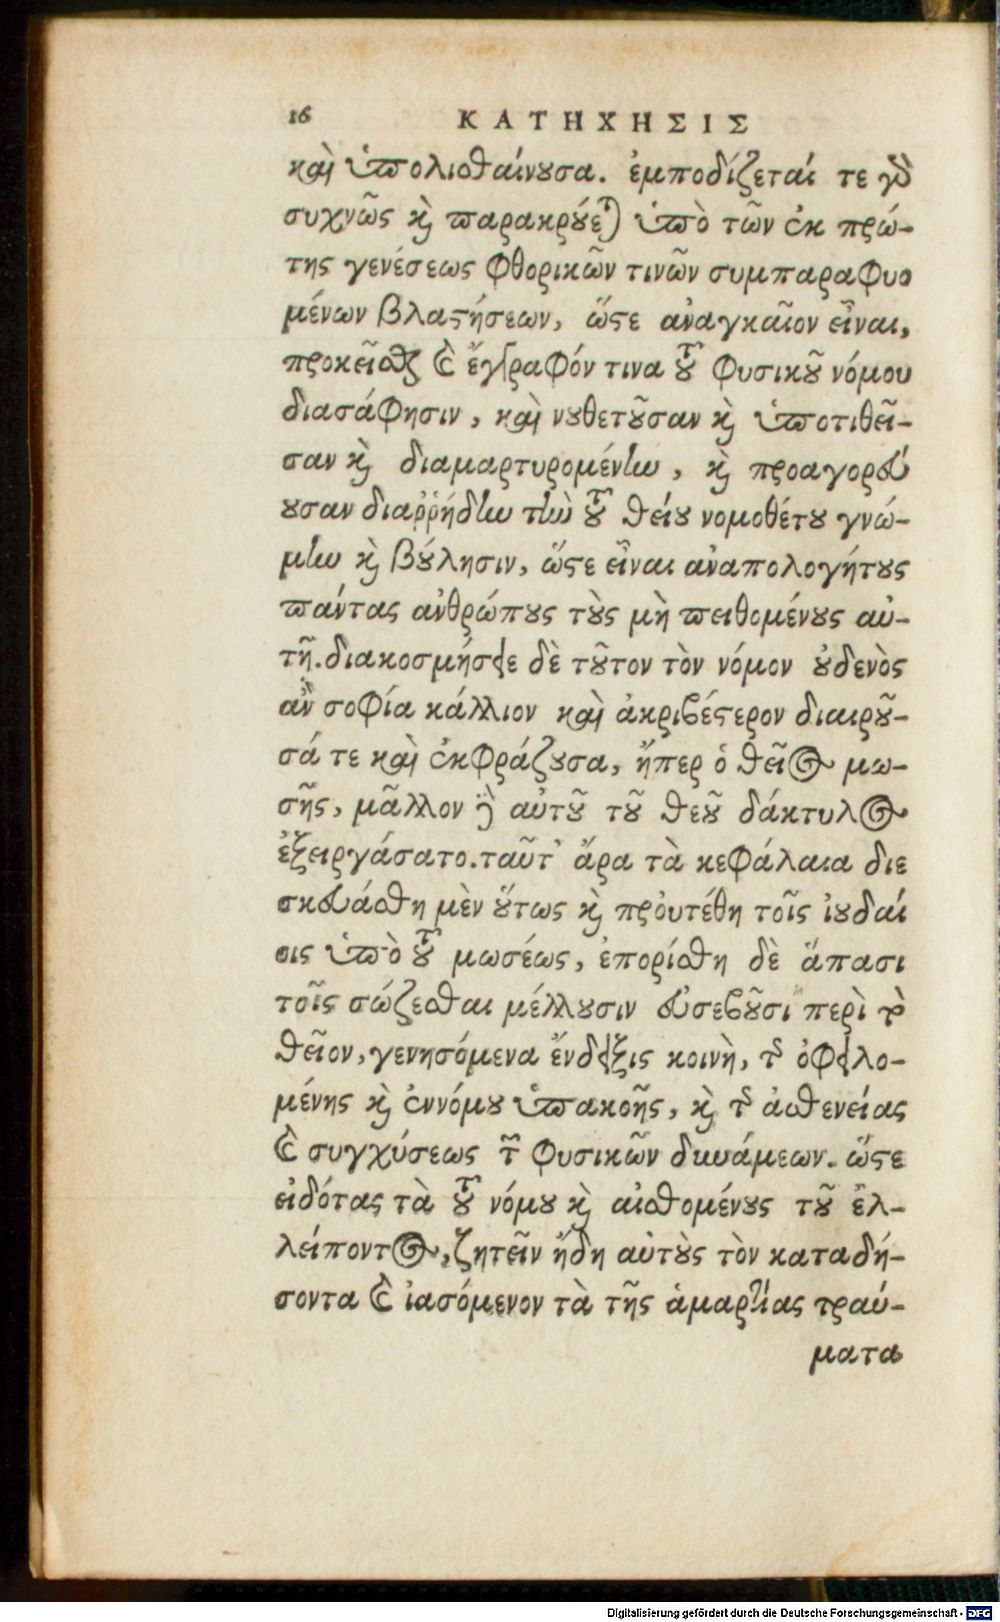 16 ΚΑΤΗΧΗΣΙΣ
καὶ ὑπολισθαίνουσα. ἐμποδίζεταί τε γὰρ
συχνῶς καὶ παρακρούεται ὑπὸ τῶν ἐκ πρώ-
της γενέσεως φθορικῶν τινῶν συμπαραφυο
μένων βλαστήσεων, ὥστε ἀναγκαῖον εἶναι,
προκεῖσθαι καὶ ἔγγραφόν τινα τοῦ φυσικοῦ νόμου
διασάφησιν, καὶ νουθετοῦσαν καὶ ὑποτιθεῖ-
σαν καὶ διαμαρτυρομένην, καὶ προαγορεύ
ουσαν διαῤῥήδην τὴν τοῦ θείου νομοθέτου γνώ-
μην καὶ βούλησιν, ὥστε εἶναι ἀναπολογήτους
πάντας ἀνθρώπους τοὺς μὴ πειθομένους αὐ-
τῇ. διακοσμήσειε δὲ τοῦτον τὸν νόμον οὐδενὸς
ἂν σοφία κάλλιον καὶ ἀκριβέστερον διαιροῦ-
σά τε καὶ ἐκφράζουσα, ἤπερ ὁ θεῖος μω-
σῆς, μᾶλλον δὲ αὐτοῦ τοῦ θεοῦ δάκτυλος
ἐξειργάσατο. ταῦτ' ἄρα τὰ κεφάλαια διε
σκευάσθη μὲν οὕτως καὶ προυτέθη τοῖς ἰουδαί
οις ὑπὸ τοῦ μωσέως, ἐπορίσθη δὲ ἅπασι
τοῖς σώζεσθαι μέλλουσιν εὐσεβοῦσι περὶ τὸ
θεῖον, γενησόμενα ἔνδειξις κοινὴ, τῆς ὀφειλο-
μένης καὶ ἐννόμου ὑπακοῆς, καὶ τῆς ἀσθενείας
καὶ συγχύσεως τῶν φυσικῶν δυνάμεων. ὥστε
εἰδότας τὰ τοῦ νόμου καὶ αἰσθομένους τοῦ ἐλ-
λείποντος, ζητεῖν ἤδη αὐτοὺς τὸν καταδή-
σοντα καὶ ἰασόμενον τὰ τῆς ἁμαρτίας τραύ-
ματα
Digitalisierung gefördert durch die Deutsche Forschungsgemeinschaft - DFG